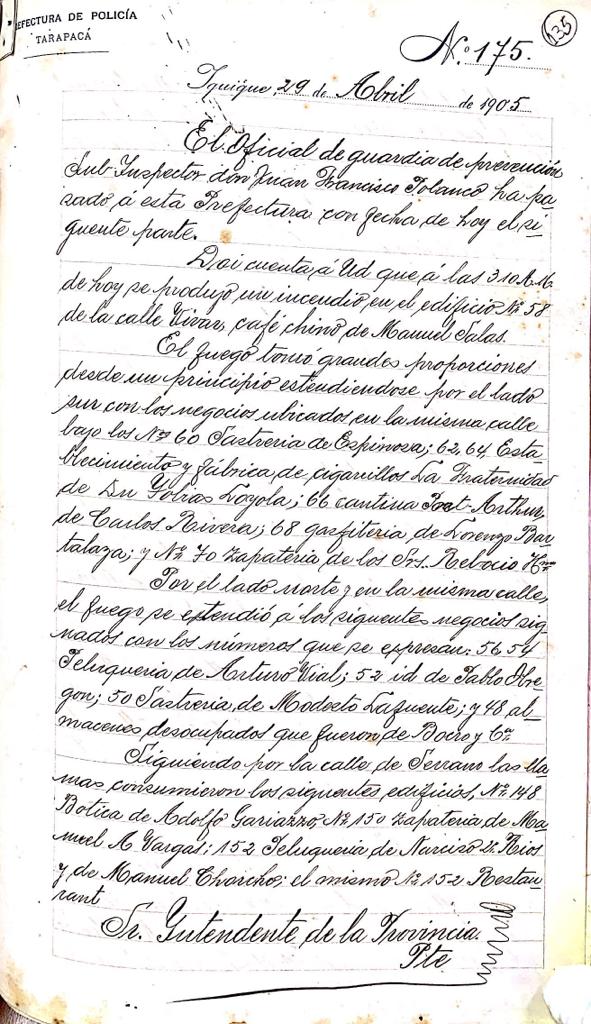 EFECTURA DE POLICÍA
TARAPACÁ
135
Nº 175.
Iquique, 29 de Abril de 1905
El Oficial de guardia de prevención
Sub-Inspector don Juan Francisco Polanco ha pa-
sado á esta Prefectura con fecha de hoy el si-
guente parte.
Doi cuenta á Ud que á las 3 10 A.M.
de hoy se produjo un incendio en el edificio Nº 58
de la calle Vivar, café chino de Manuel Salas.
El fuego tomó grandes proporciones
desde un principio estendiendose por el lado
sur con los negocios ubicados en la misma calle
bajo los Nos 60 Sastreria de Espinosa; 62, 64 Esta-
blecimiento y fábrica de cigarrillos La Fraternidad
de Dn Tobias Loyola; 66 cantina Port-Arthur
de Carlos Rivera; 68 gasfiteria de Lorenzo Bar
talaza; y Nº 70 Zapateria de los Srs. Rebocio Hnos
Por el lado norte y en la misma calle,
el fuego se estendió á los siguentes negocios sig-
nados con los números que se expresan: 56 54
Peluqueria de Arturo Vial; 52 id de Pablo Obre-
gon; 50 Sastreria de Modesto Lafuente; y 48 al-
macenes desocupados que fueron de Bocro y Ca.
Siguiendo por la calle de Serrano las lla
mas consumieron los siguentes edificios, Nº 148
Botica de Adolfo Gariazzo, Nº 150 Zapateria de Ma-
nuel A Vargas; 152 Peluqueria de Narciso 2º Rios
y de Manuel Chorcho; el mismo Nº 152 Restau-
rant
Sr. Intendente de la Provincia.
Pte